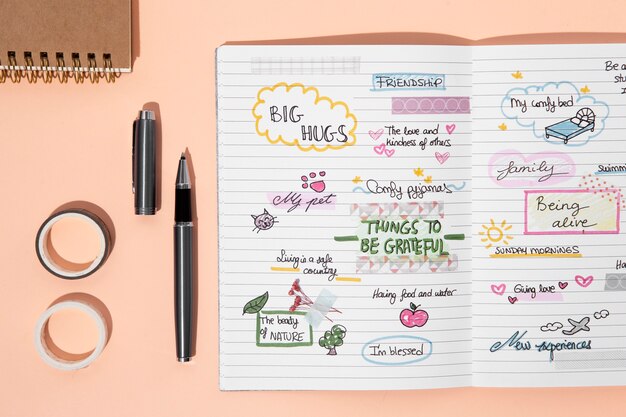 FRIENDSHIP
BIG
HUGS
The love and
kindness of others
My pet
Comfy pajamas
THINGS TO
BE GRATEFUL
Living in a safe
country
Having food and water
The beauty
of NATURE
I'm blessed
Be a
stu
My comfy bed
family
Being
alive
SUNDAY MORNINGS
Giving love
New experiences